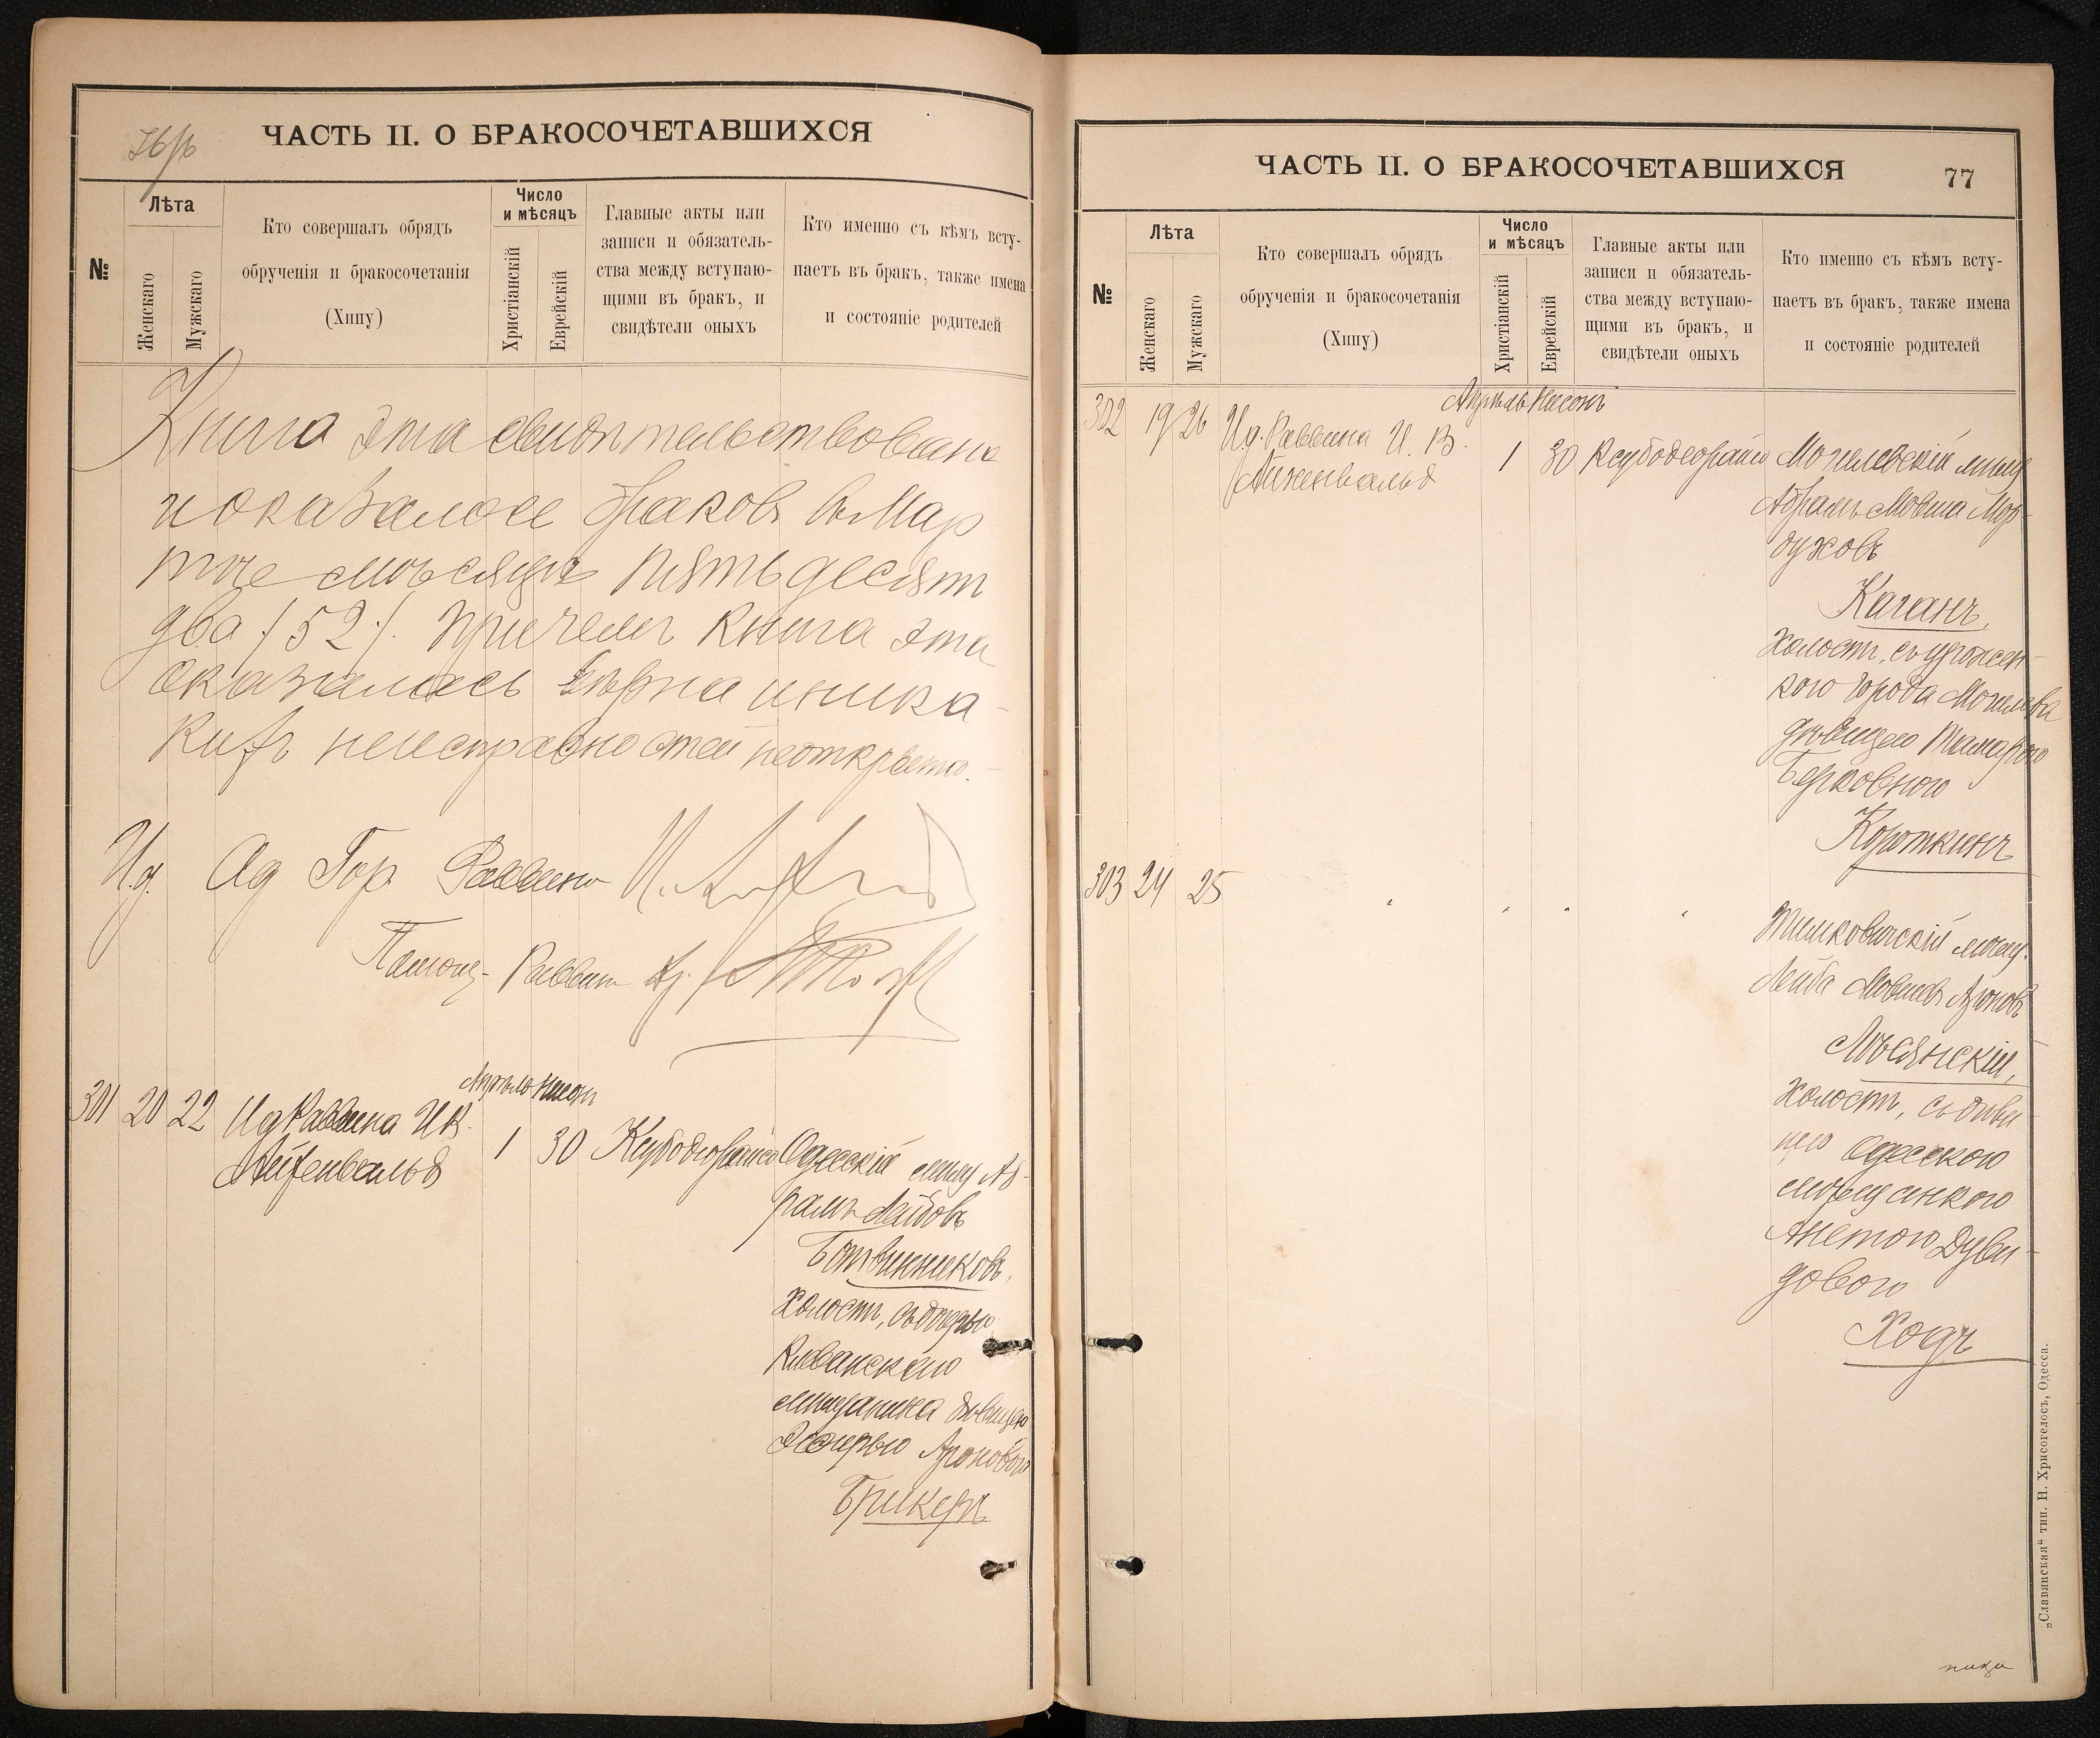 ЧАСТЬ II. О БРАКОСОЧЕТАВШИХСЯ
№
Лѣта
Женскаго
Мужскаго
Кто совершалъ обрядъ
обрученія и бракосочетанія
(Хипу)
Число
и мѣсяцъ
Христіанскій
Еврейскій
Главные акты или
записи и обязатель-
ства между вступаю-
щими въ бракъ, и
свидѣтели оныхъ
Кто именно съ кѣмъ всту-
паетъ въ бракъ, также имена
и состояніе родителей
Книга эта свидѣтельствована
и оказалось браковъ въ Мар
тѣ мѣсяцѣ пятьдесят
два /52/. Причемъ книга эта
оказалась вѣрна и ника-
кихъ неисправностей неоткрыто.
И.д. Од Гор. Раввина
Помощ. Раввин
Апрѣль Нисонъ
301 20 22 Ид Раввина И.В.
Айзенвальд
1 30
Одесскій мѣщ Аб-
рамъ Лейбовъ
Ботвинниковъ,
Холостъ, съ дочерью
мѣщанина дѣвицею
Эсѳирью Ароновою
Брикеръ
ЧАСТЬ II. О БРАКОСОЧЕТАВШИХСЯ
77
№
Лѣта
Женскаго
Мужскаго
Кто совершалъ обрядъ
обрученія и бракосочетанія
(Хипу)
Число
и мѣсяцъ
Христіанскій
Еврейскій
Главные акты или
записи и обязатель-
ства между вступаю-
щими въ бракъ, и
свидѣтели оныхъ
Кто именно съ кѣмъ всту-
паетъ въ бракъ, также имена
и состояніе родителей
Апрѣль Нисонъ
302 19 26 И.д. Раввина И. В.
Айзенвальд
1 30
Могилевскій мѣщ
Абрамъ Мовша Мор-
духовъ
Каганъ,
Холостъ, съ урожен-
кою города Могилева
дѣвицею Тамарою
Берковною
Короткинъ
303 24 25 " " " "
Тимковичскій мѣщ.
Лейба Мовшевъ Ароновъ
Мѣсянскій,
Холостъ, съ дѣви-
цею Одесскою
мѣщанкою
Анетою Дуви-
довою
Ходъ
„Славянская“ тип. Н. Хрисогелосъ, Одесса.